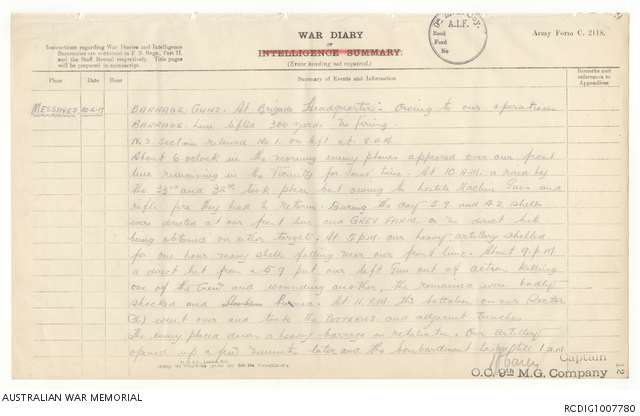 WAR DIARY
OF
INTELLIGENCE SUMMARY.
(Erase heading not required.)
A.I.F.
Army Form C. 2118.
Instructions regarding War Diaries and Intelligence
Summaries are contained in F. S. Regs., Part II.
and the Staff Manual respectively. Title pages
will be prepared in manuscript.
Place
Date
Hour
Summary of Events and Information
Remarks and
references to
Appendices
MESSINES
BARRAGE GUNS. At Brigade Headquarters. Owing to our operations
BARRAGE line lifted 300 yards. No firing.
No 3 Section relieved No 1 on left at 8 A.M.
About 6 oclock in the morning enemy planes appeared over our front
line remaining in the vicinity for some time. At 10 A.M. a raid by
the 33rd and 35th took place but owing to hostile Machine Guns and
rifle fire they had to return. During the day 5.9 and 4.2 shells
were directed at our front line and GREY FARM no direct hit
being obtained on either target. At 5 p.m. our heavy artillery shelled
for one hour many shells falling near our front line. About 9 p.m
a direct hit from a 5.9 put our left Gun out of action killing
one of the crew and wounding another. The remainder were badly
shocked and. At 11 P.M. the battalion on our
went over and took the POTTERIES and adjacent trenches
The enemy placed down a heavy barrage in retaliation. Our artillery
opened up a few minutes later and the bombardment till 1 a.m.
Captain
O.C. 9th M.G. Company
12
AUSTRALIAN WAR MEMORIAL
RCDIG1007780